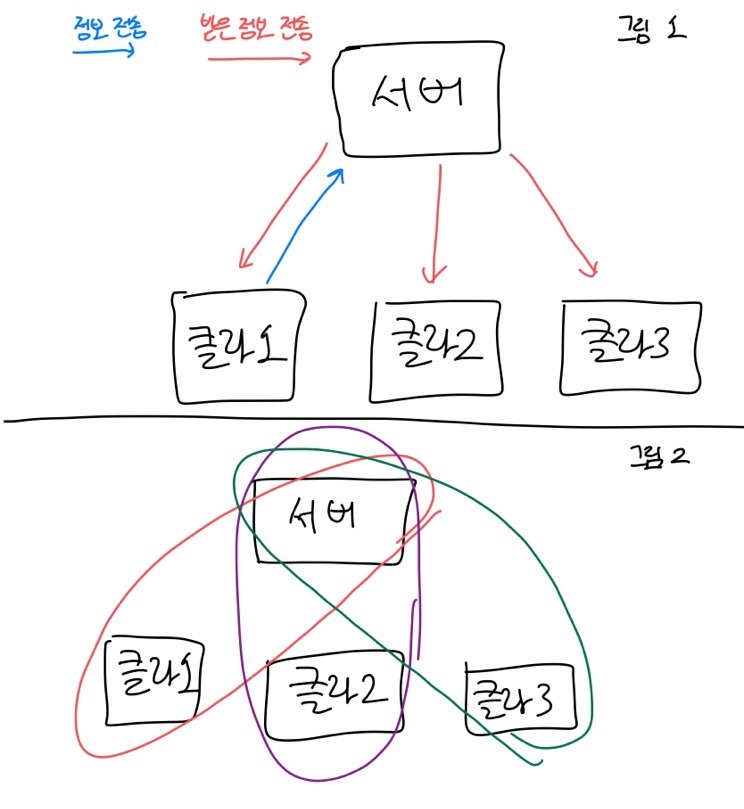 정보 전송
받은 정보 전송
그림 1
서버
클라1
클라2
클라3
그림 2
서버
클라1
클라2
클라3